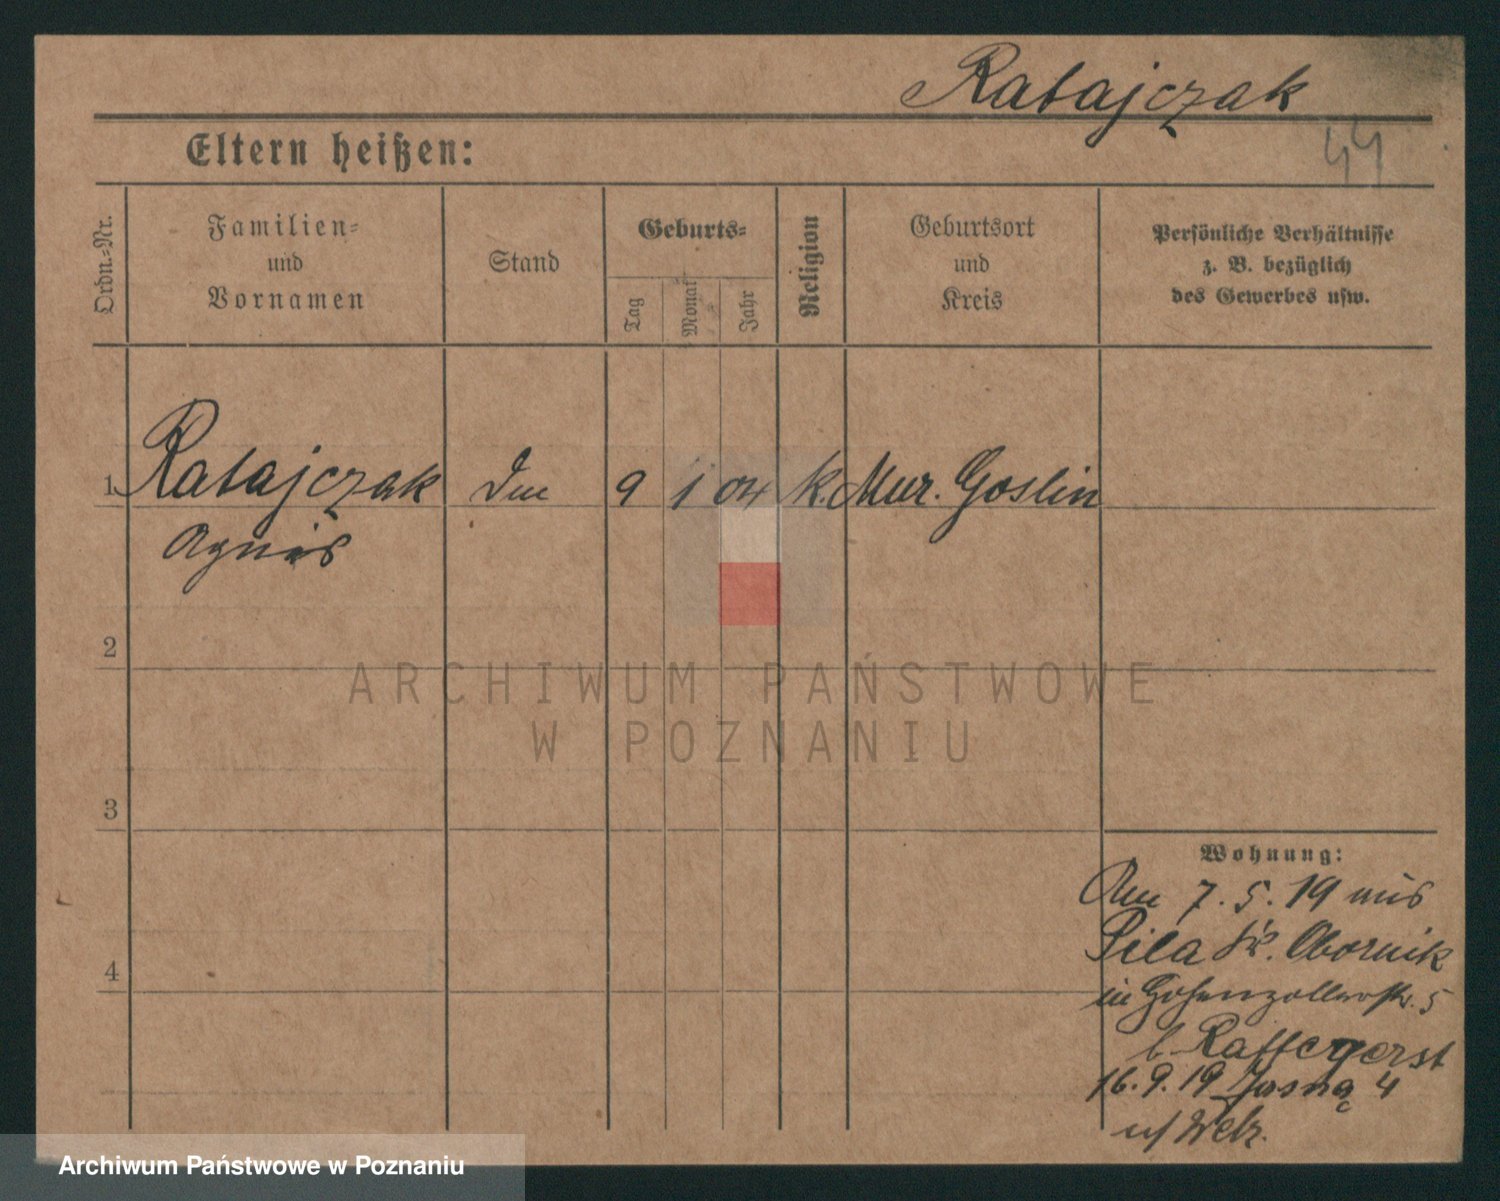 Ratajczak
44
Eltern heißen:
Ordn.-Nr.
Familien-
und
Vornamen
Stand
Geburts-
Tag
Monat
Jahr
Religion
Geburtsort
und
Kreis
Persönliche Verhältnisse
z. B. bezüglich
des Gewerbes usw.
1 Ratajczak 9 1 04 k. Mur. Goslin
Agnes
2
ARCHIWUM PAŃSTWOWE
W POZNANIU
3
Wohnung:
Am 7.5.19 aus
Pila Kr. Obornik
4
in Hohenzollernstr. 5
b.
16.9.19 Jasna 4
Archiwum Państwowe w Poznaniu